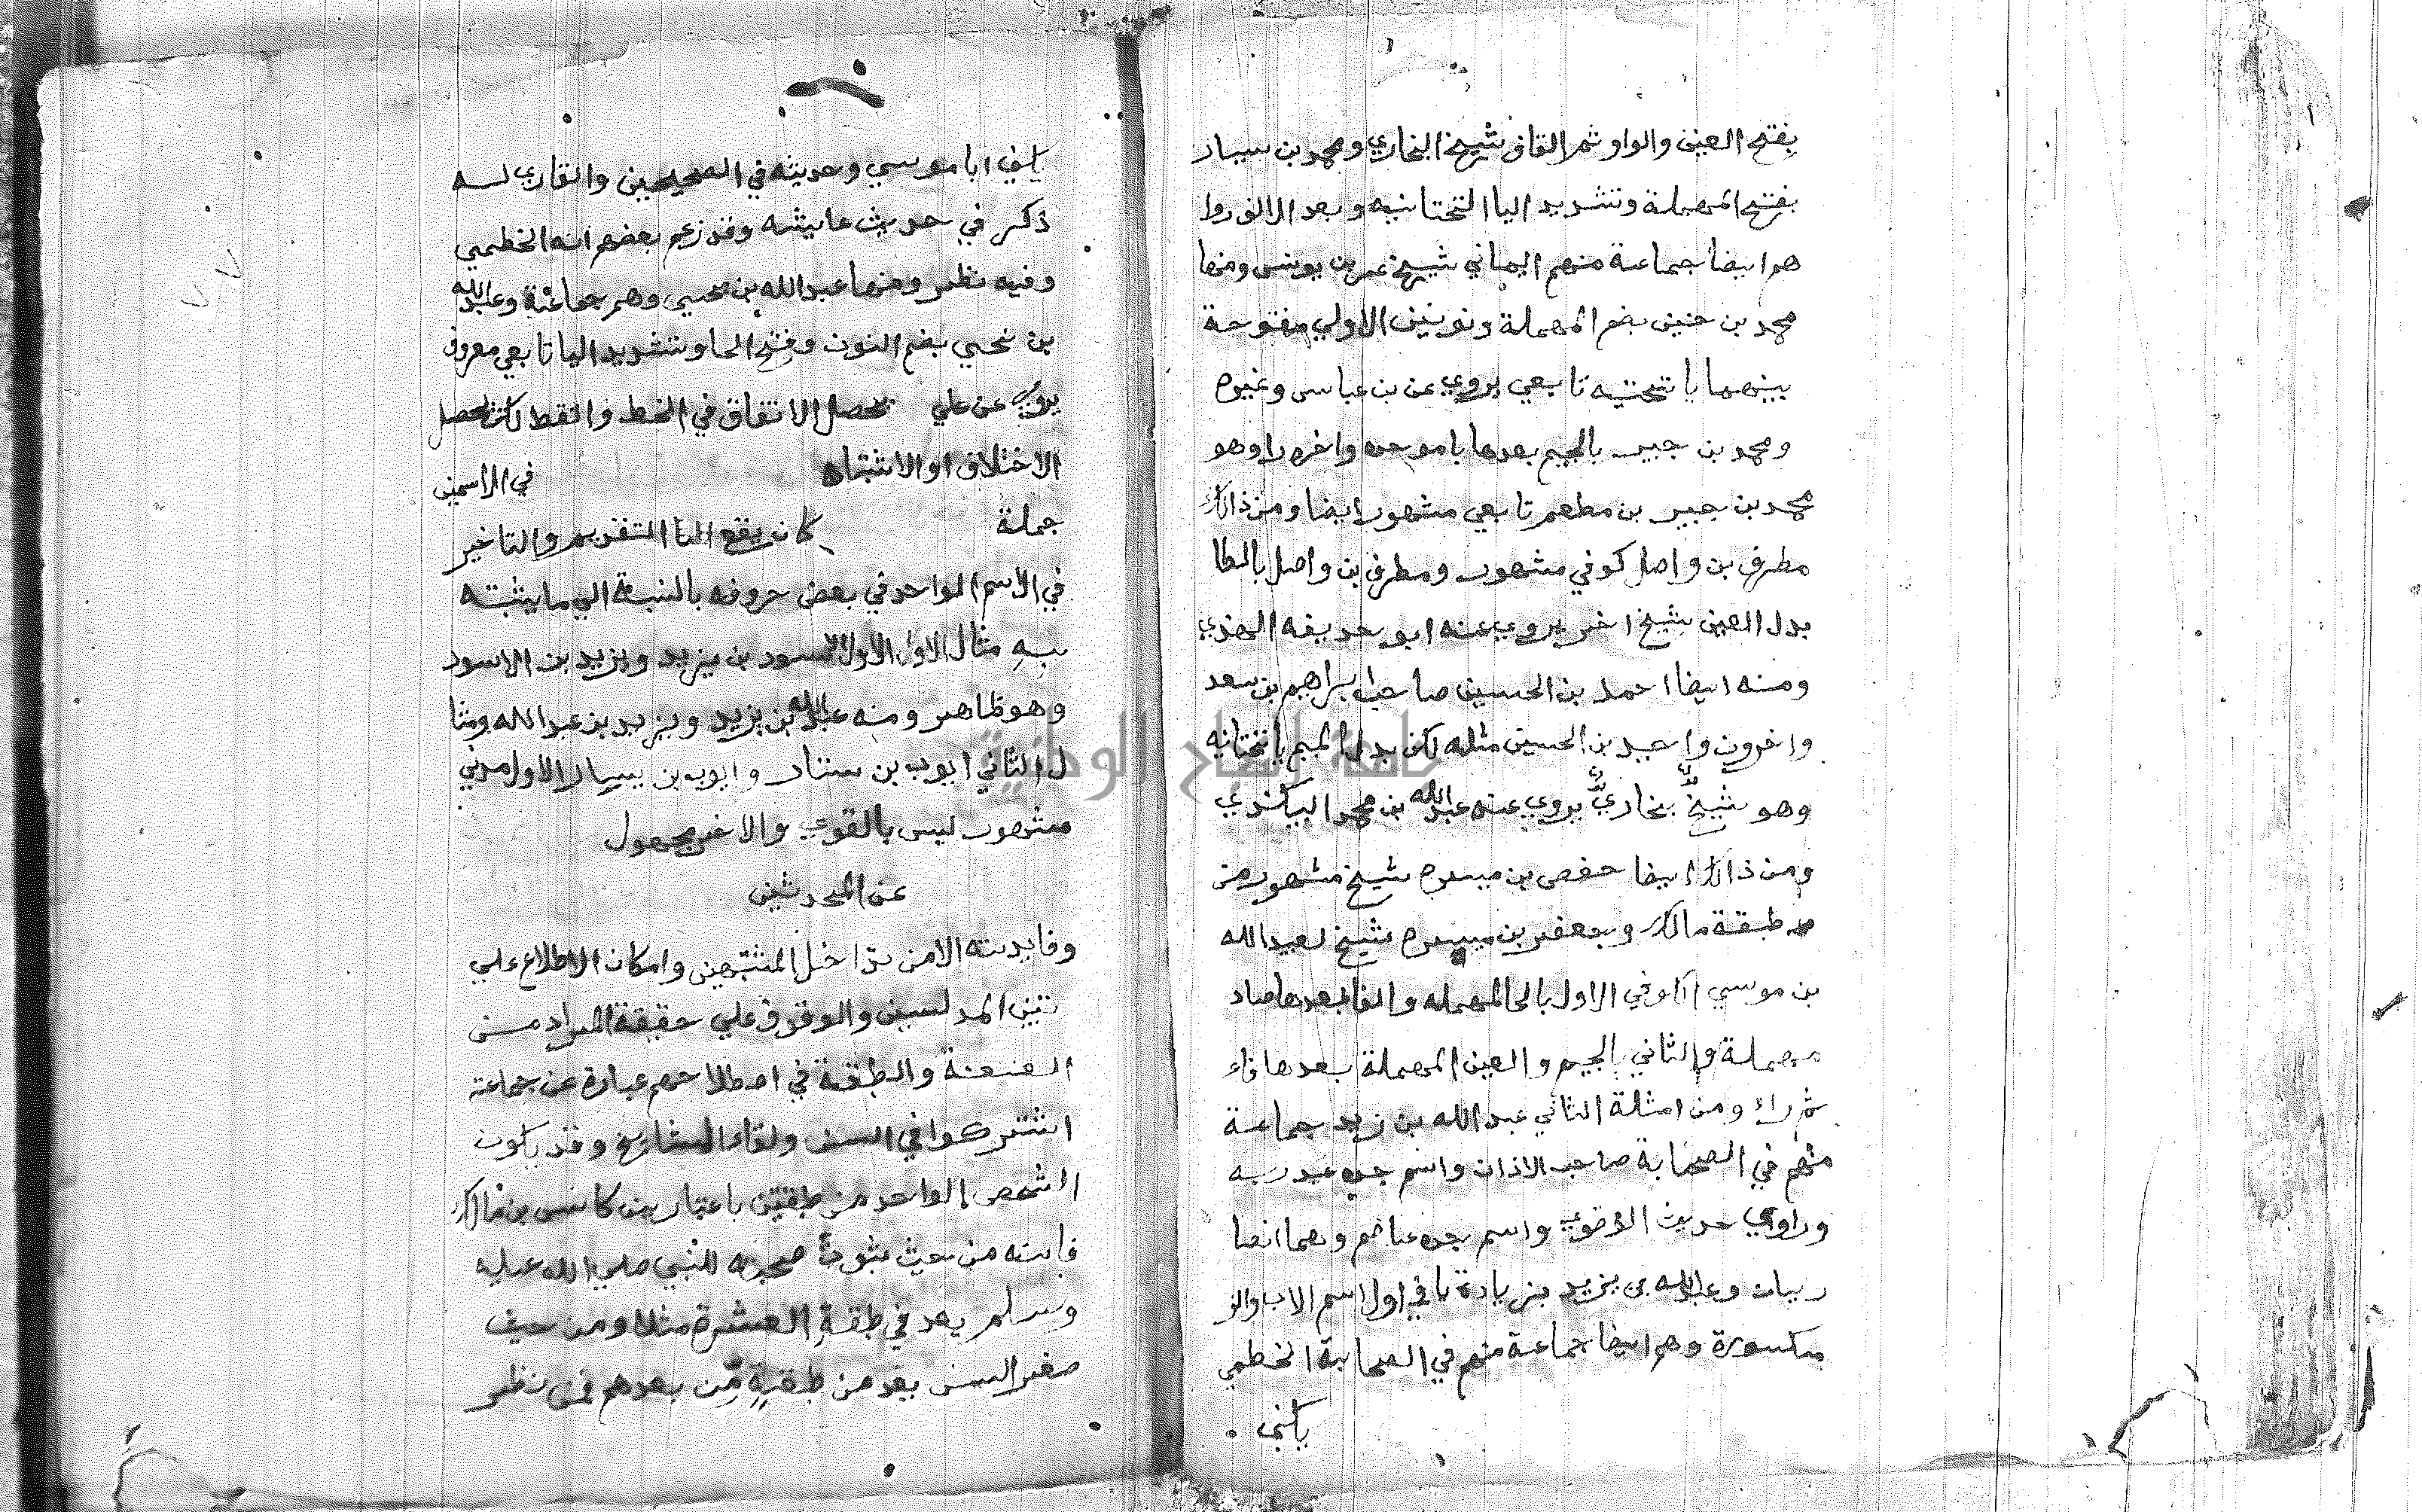 بفتح العين والواو ثم القاف شيخ البخاري ومحمد بن سيار
بفتح المهملة وتشديد اليا التحتانيه وبعد الالف را و
هم ايضا جماعة منهم اليماني شيخ عمر بن يونس ومنها
محمد بن حنين بضم المهملة ونونين الاولي مفتوحة
بينهما يا تحتيه تابعي يروي عن بن عباس وغيره
ومحمد بن جبير بالجيم بعدها با موحده واخره را وهو
محمد بن جبير بن مطعم تابعي مشهور ايضا ومن ذالك
مطرف بن واصل كوفي مشهور ومطرف بن واصل بالطا
بدل العين شيخ اخر يروي عنه ابو حديفه الهندي
ومنه ايضا احمد بن الحسين صاحب ابراهيم بن سعد
واخرون واحيد بن الحسين مثله لكن بدل الميم يا تحتانيه
وهو شيخ بخاري يروي عنه عبد الله بن محمد البيكندي
ومن ذالك ايضا حفص بن ميسره شيخ مشهور من
طبقة مالك وجعفر بن ميسره شيخ لعبيد الله
بن موسي الكوفي الاول بالحا المهمله والفا بعدها صاد
مهملة والثاني بالجيم والعين المهملة بعدها فاء
ثم راء ومن امثلة الثاني عبد الله بن زيد جماعة
منهم في الصحابة صاحب الاذان واسم جده عبد ربه
وراوي حديث الوضوي واسم جده عاصم وهما انصا
ريان وعبد الله بن يزيد بزيادة يا في اول اسم الاب والز
مكسورة وهم ايضا جماعة منهم في الصحابة الخطمي
يكني
يكني ابا موسي وحديثه في الصحيحين والقاري له
ذكر في حديث عايشه وقد زعم بعضهم انه الخطمي
وفيه نظر ومنها عبد الله بن يحيي وهم جماعة وعبد الله
بن نجي بضم النون وفتح الجا وتشديد اليا تابعي معروف
يروي عن علي يحصل الاتفاق في الخط والنقط لكن يحصل
الاختلاق او الاشتباه في الاسمين
جملة كان يقع اليا التقديم والتاخير
في الاسم الواحد في بعض حروفه بالنسبة الي ما يشتبه
به مثال الاول الاسود بن يزيد ويزيد بن الاسود
وهو ظاهر ومنه عبد الله بن يزيد ويزيد بن عبد الله ومثا
ل الثاني ايوب بن سنار وايوب بن يسار الاول مدني
مشهور ليس بالقوي والاخر مجهول
عن المحدثين
وفايدته الامن تداخل المشتبهين وامكان الاطلاع علي
تبين المدلسين والوقوف علي حقيقة المراد من
العنعنة والطبقة في اصطلاحهم عبارة عن جماعة
اشتركوا في السن ولقاء المشايخ وقد يكون
الشخص الواحد من طبقتين باعتبارين كانس بن مالك
فانه من حيث ثبوت صحبته للنبي صلي الله عليه
وسلم يعد في طبقة العشرة مثلا ومن حيث
صغر السن يعد من طبقة من بعدهم فمن نظر